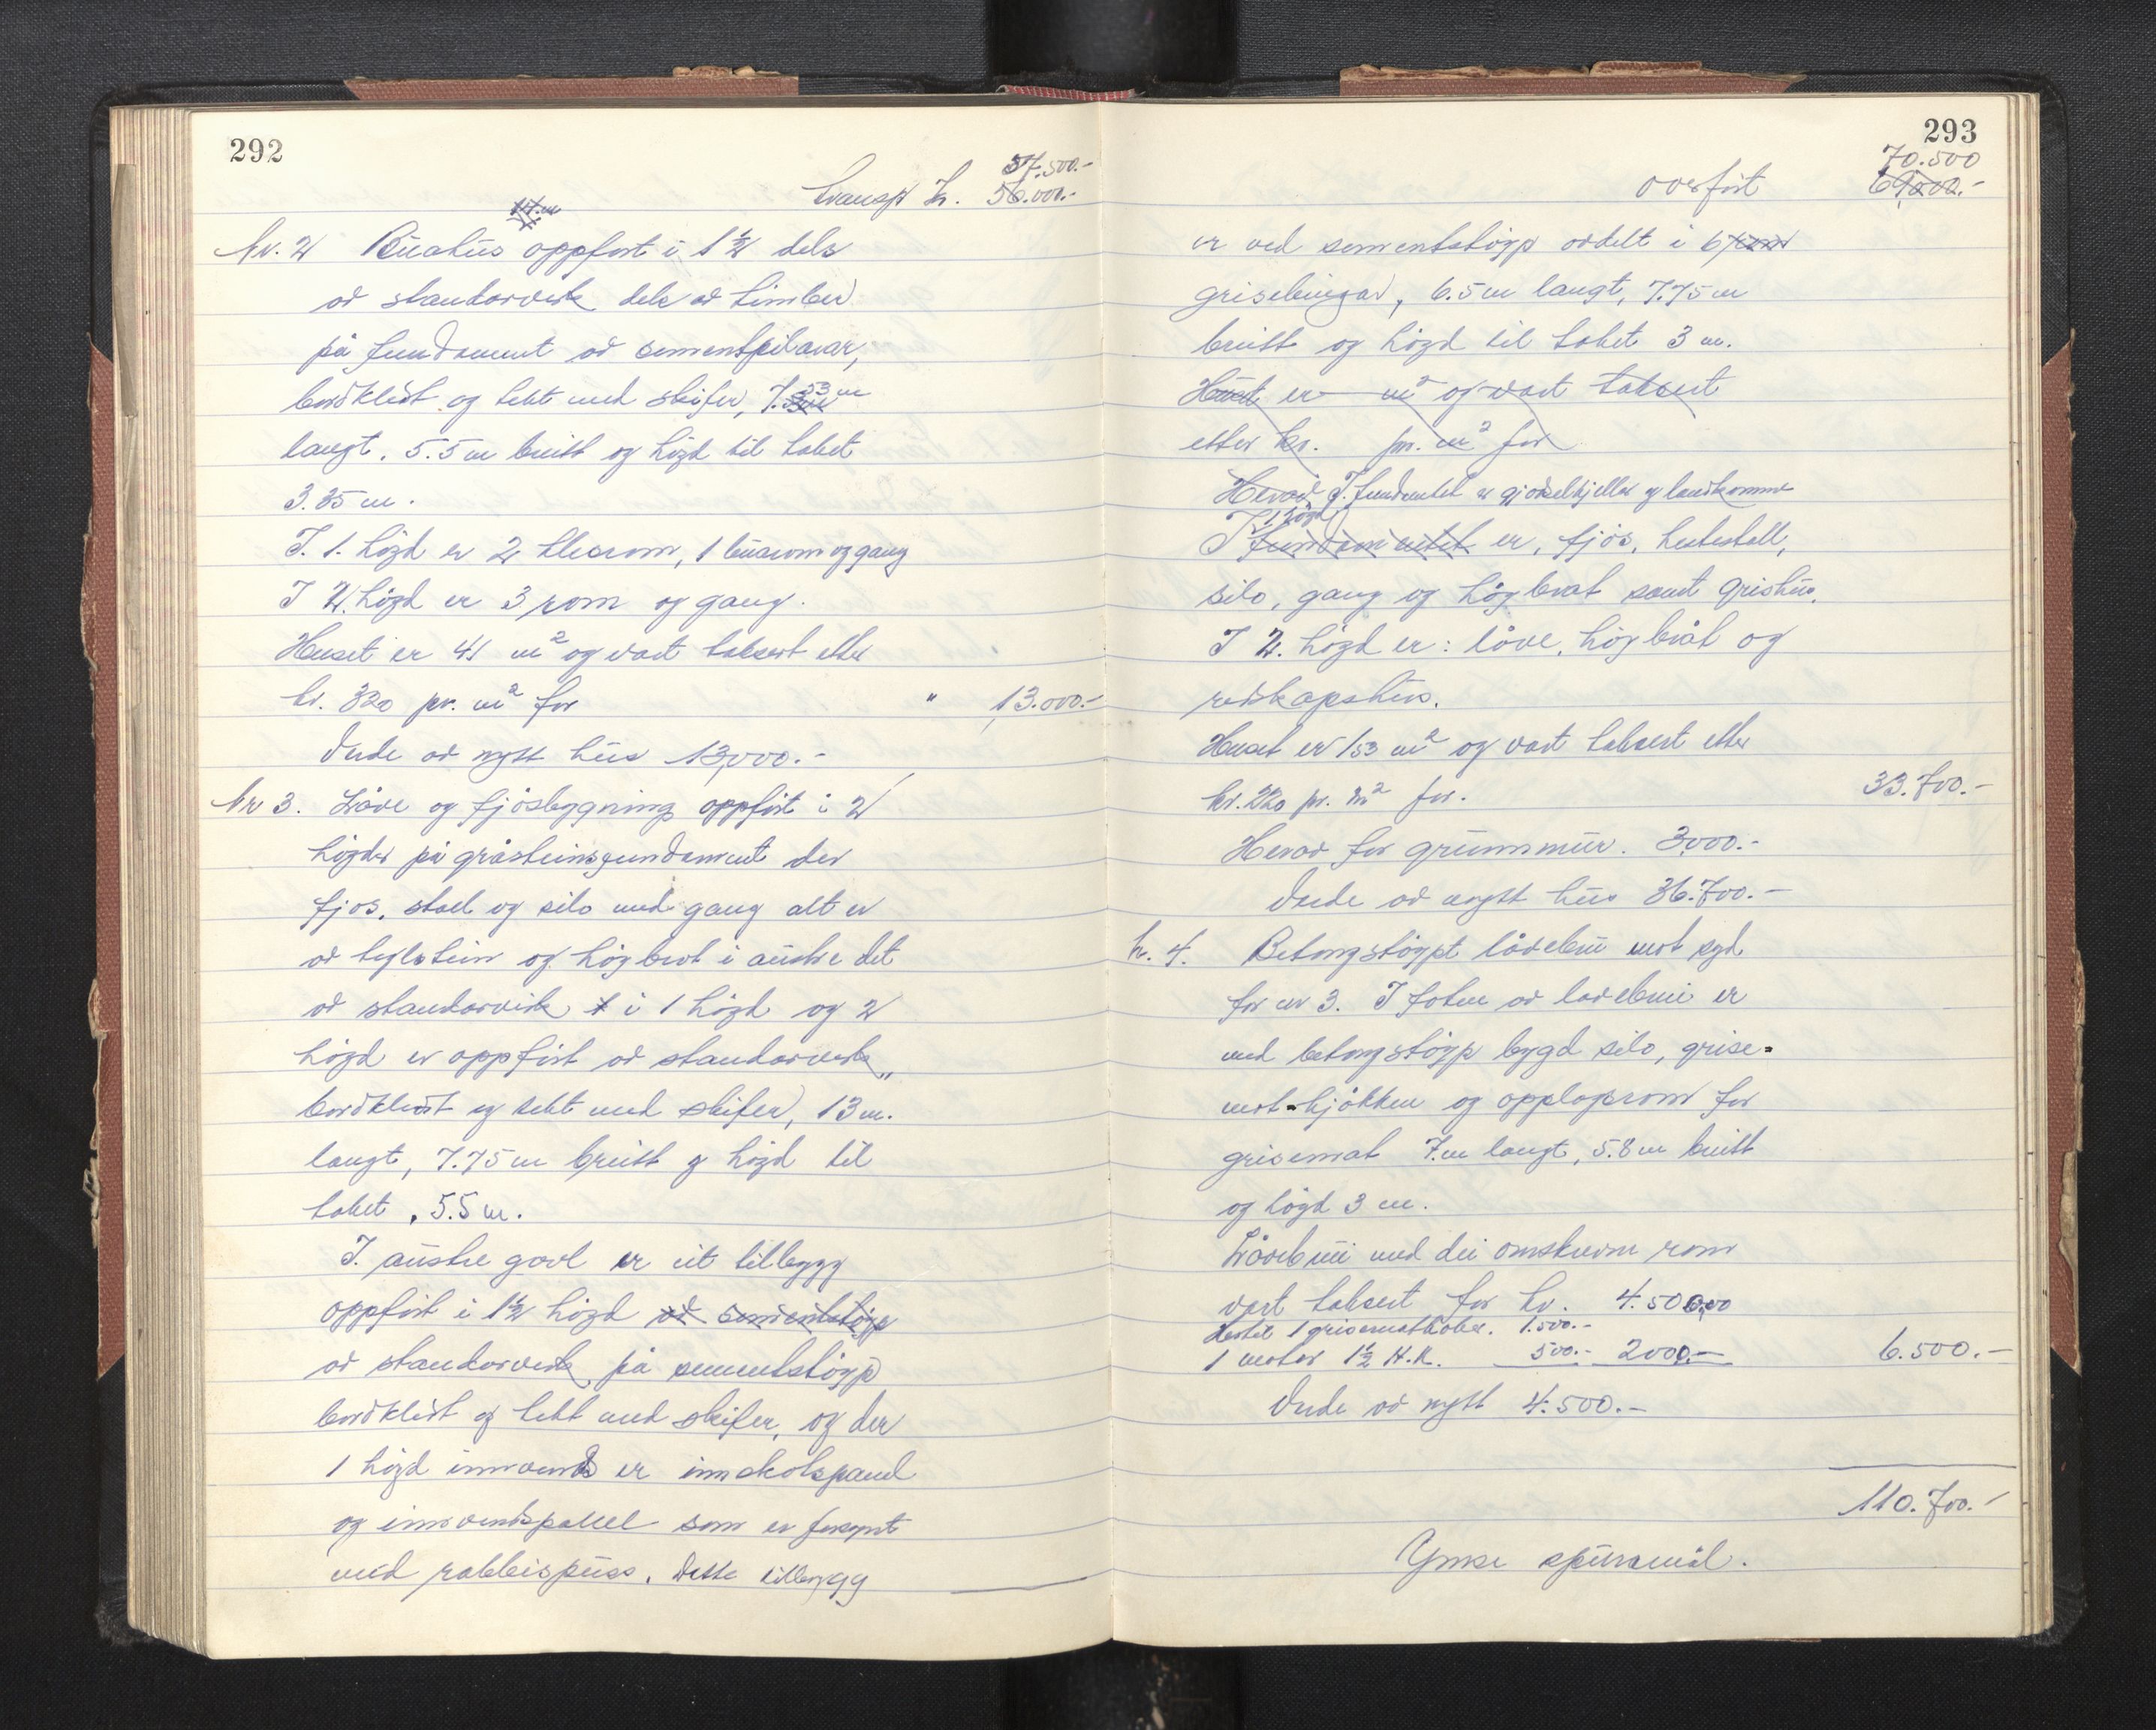 292
57.500.-
transp kr. 56.000.-
Nr. 2 Buahus oppfört i 1 1/2 dels
av standarverk dels av timber
på fundament av sementpilarar,
bordkledt og tekt med skifer, 7.53 m
langt, 5.5 m breitt og högd til taket
3.35 m.
I. 1. högd er 2 klesrom, 1 buarom og gang
I 2. högd er 3 rom og gang.
Huset er 41 m² og vart taksert etter
kr. 320 pr. m² for " 13.000.-
Verde av nytt hus 13,000.-
Nr 3. Löve og fjösbygning oppfört i 2
högder på gråsteinsfundament der
fjos, stall og silo med gang alt er
av teglstein og högbrot i austre det
av standarverk i 1 högd og 2
högd er oppfört av standarverk,
bordkledt og tekt med skifer, 13 m.
langt, 7.75 m breitt og högd til
taket 5.5 m.
I. austre gavl er eit tilbygg
oppfört i 1 1/2 högd av sementstöyp
av standarverk på sementstöyp
bordkledt og tekt med skifer, og der
1 högd innvends er innskotspanel
og innvendspanel som er forsynt
med rabbispuss. Dette tilbygg
293
70.500
overfört 69.000.-
er ved sementstöyp avdelt i 6 rom
grisebingar, 6.5 m langt, 7.75 m
breitt og högd til taket 3 m.
Huset er m² og vart taksert
etter kr. pr. m² for
Herav I. fundamentet er gjödselkjellar og landkumme
1 högd
I fundamentet er, fjös, hestestall,
silo, gang og högbrot samt grishus.
I 2. högd er: löve, högbrot og
redskapshus.
Huset er 153 m² og vart taksert etter
kr. 220 pr. m² for. 33.700.-
Herav for grunnmur. 3.000.-
Verde av nytt hus 36.700.-
Nr. 4. Betongstöypt lövebru mot syd
for nr 3. I foten av lövebrui er
med betongstöyp bygd silo, grise-
mat-kjökken og opplagsrom for
grisemat 7.m langt, 5.8 m breitt
og högd 3 m.
Lövebrui med dei omskrevne rom
vart taksert for kr. 4.500,00
1 grisematkokar. 1.500.-
1 motor 1 1/2 H.K. 500.- 2000.- 6.500.-
Verde av nytt 4.500.-
110.700.-
Ymse spursmål.